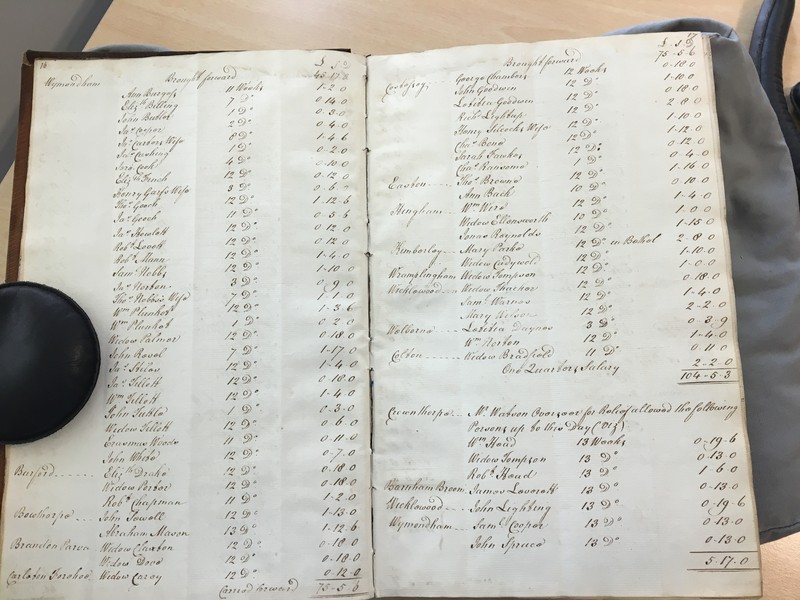 16
£ S D
Brought forward 45-17-3
Wymondham
Ann Burges 11 Weeks 1-2-0
Eliz.th Billing 7 Do 0-14-0
John Butler 1 Do 0-3-0
Jas. Cooper 2 Do 0-4-0
Jas. Carvers Wife 8 Do 1-4-6
Jas. Cushing 1 Do 0-2-0
Sara Cook 4 Do 0-10-0
Eliz.th Finch 12 Do 0-12-0
Henry Garfs Wife 3 Do 0-6
Thos. Gooch 12 Do 1-12-6
Jas. Gooch 11 Do 0-5-6
Jas. Howlett 12 Do 0-12-0
Robt. Lovett 12 Do 0-12-0
Robt. Mann 12 Do 1-4-0
Saml. Nobbs 12 Do 1-10-0
Jas. Norton 3 Do 0-9-0
Thos. Nobbs's Wife 7 Do 1-1-0
Wm. Pleaker 12 Do 1-3-6
Wm. 1 Do 0-2-0
Widow Palmer 12 Do 0-18-0
John Rosol 7 Do 1-17-0
Jas. Stileas 12 Do 1-4-0
Jas. Tillett 12 Do 0-18-0
Wm. Tillett 12 Do 1-4-0
John Tuttle 1 Do 0-3-0
Widow Tillett 12 Do 0-6-0
Erasmus Woods 11 Do 0-11-0
John White 12 Do 0-7-0
Barford Eliz.th Drake 12 Do 0-18-0
Widow Porter 12 Do 0-18-0
Robt. Chapman 11 Do 1-2-0
Bowthorpe John Jowell 12 Do 1-13-0
Abraham Mason 13 Do 1-12-6
Brandon Parva Widow Clarkson 12 Do 0-18-0
Widow Dove 12 Do 0-18-0
Carleton Forehoe Widow Carey 12 Do 0-12-0
Carried forward 75-5-6
17
£ S D
Brought forward 75-5-6
Costessey George Chambers 12 Weeks 0-18-0
John Goodwin 12 Do 1-10-0
Loretta Goodwin 12 Do 0-18-0
Richd. Lightup 12 Do 2-8-0
Henry Silcocks Wife 12 Do 1-10-0
Chas. Bond 12 Do 1-12-0
Sarah Parker 12 Do 0-12-0
Chas. Ransome 1 Do 0-4-0
Easton Thos. Browne 12 Do 1-16-0
Ann Buck 10 Do 0-10-0
Hingham Wm. Wire 12 Do 1-4-0
Widow Ellensworth 10 Do 1-0-0
Jonas Reynolds 12 Do 1-15-0
Kimberley Mary Parke 12 Do in Bethel 2-8-0
Widow Cadywell 12 Do 1-10-0
Wramplingham Widow Tompson 12 Do 1-0-0
Wicklewood Widow Thacker 12 Do 0-18-0
Saml. Warnes 12 Do 1-4-0
Mary Wilson 12 Do 2-2-0
Welborne Loretta Daynes 3 Do 0-3-9
Wm. Norton 12 Do 1-4-0
Colton Widow Bradfield 11 Do 0-11-0
One Quarters Salary 2-2-0
104-5-3
Crownthorpe Mr. Watson Overseer for Relief allowed the following
Persons up to this Day (Viz)
Wm. Head 13 Weeks 0-19-6
Widow Tompson 13 Do 0-13-0
Robt. Head 13 Do 1-6-0
Barnham Broom James Loverett 13 Do 0-13-0
Wicklewood John Lighting 13 Do 0-19-6
Wymondham Saml. Cooper 13 Do 0-13-0
John Spruce 13 Do 0-13-0
5-17-0